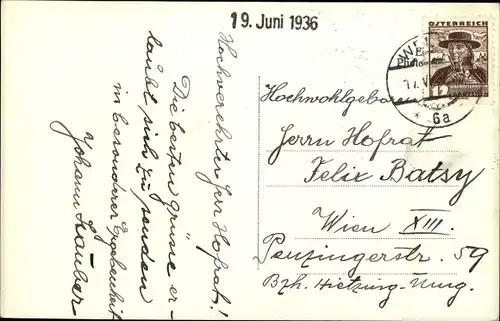 19. Juni 1936
Hochverehrter Herr Hofrat!
Die besten Grüsse er-
laubt sich zu senden
in besonderer Ergebenheit
Johann
ÖSTERREICH
6a
Hochwohlgebor
Herrn Hofrat
Felix Batsy
Wien XIII.
Penzingerstr. 59
Bzh. Hietzing-Umg.